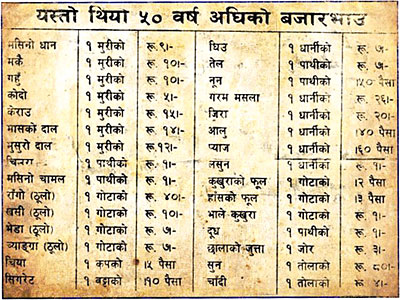 यस्तो थियो ५० वर्ष अघिको बजारभाउ
मसिनो धान १ मुरीको रू.९।-
मकै १ मुरीको रू.१०।-
गहुँ १ मुरीको रू.१०।-
कोदो १ मुरीको रू. ५।-
केराउ १ मुरीको रू.१५।-
मासको दाल १ मुरीको रू.१४।-
मुसुरो दाल १ मुरीको रू.१२।-
१ पाथीको रू. १।-
मसिनो चामल १ पाथीको रू. १।-
राँगो (ठूलो) १ गोटाको रू. ४०।-
खसी (ठूलो) १ गोटाको रू.१०।-
भेडा (ठूलो) १ गोटाको रू. ७।-
च्याङ्ग्रा (ठूलो) १ गोटाको रू. ७।-
चिया १ कपको १५ पैसा
सिगरेट १ बट्टाको १० पैसा
घिउ १ धार्नीको रू. ७।-
तेल १ पाथीको रू. ७।-
नून १ पाथीको पैसा
गरम मसला १ धार्नीको रू. २६।-
जिरा १ धार्नीको रू. २०।-
आलु १ धार्नीको ४० पैसा
प्याज १ धार्नीको ६० पैसा
लसुन १ धार्नीको रू. १।-
कुखुराको फूल १ गोटाको १२ पैसा
हांसको फूल १ गोटाको १३ पैसा
भाले कुखुरा १ गोटाको रू. १।-
दूध १ पाथीको रू. १।-
छालाको जुत्ता १ जोर रू. ३।-
सुन १ तोलाको रू. ८०।-
चाँदी १ तोलाको रू. ४।-